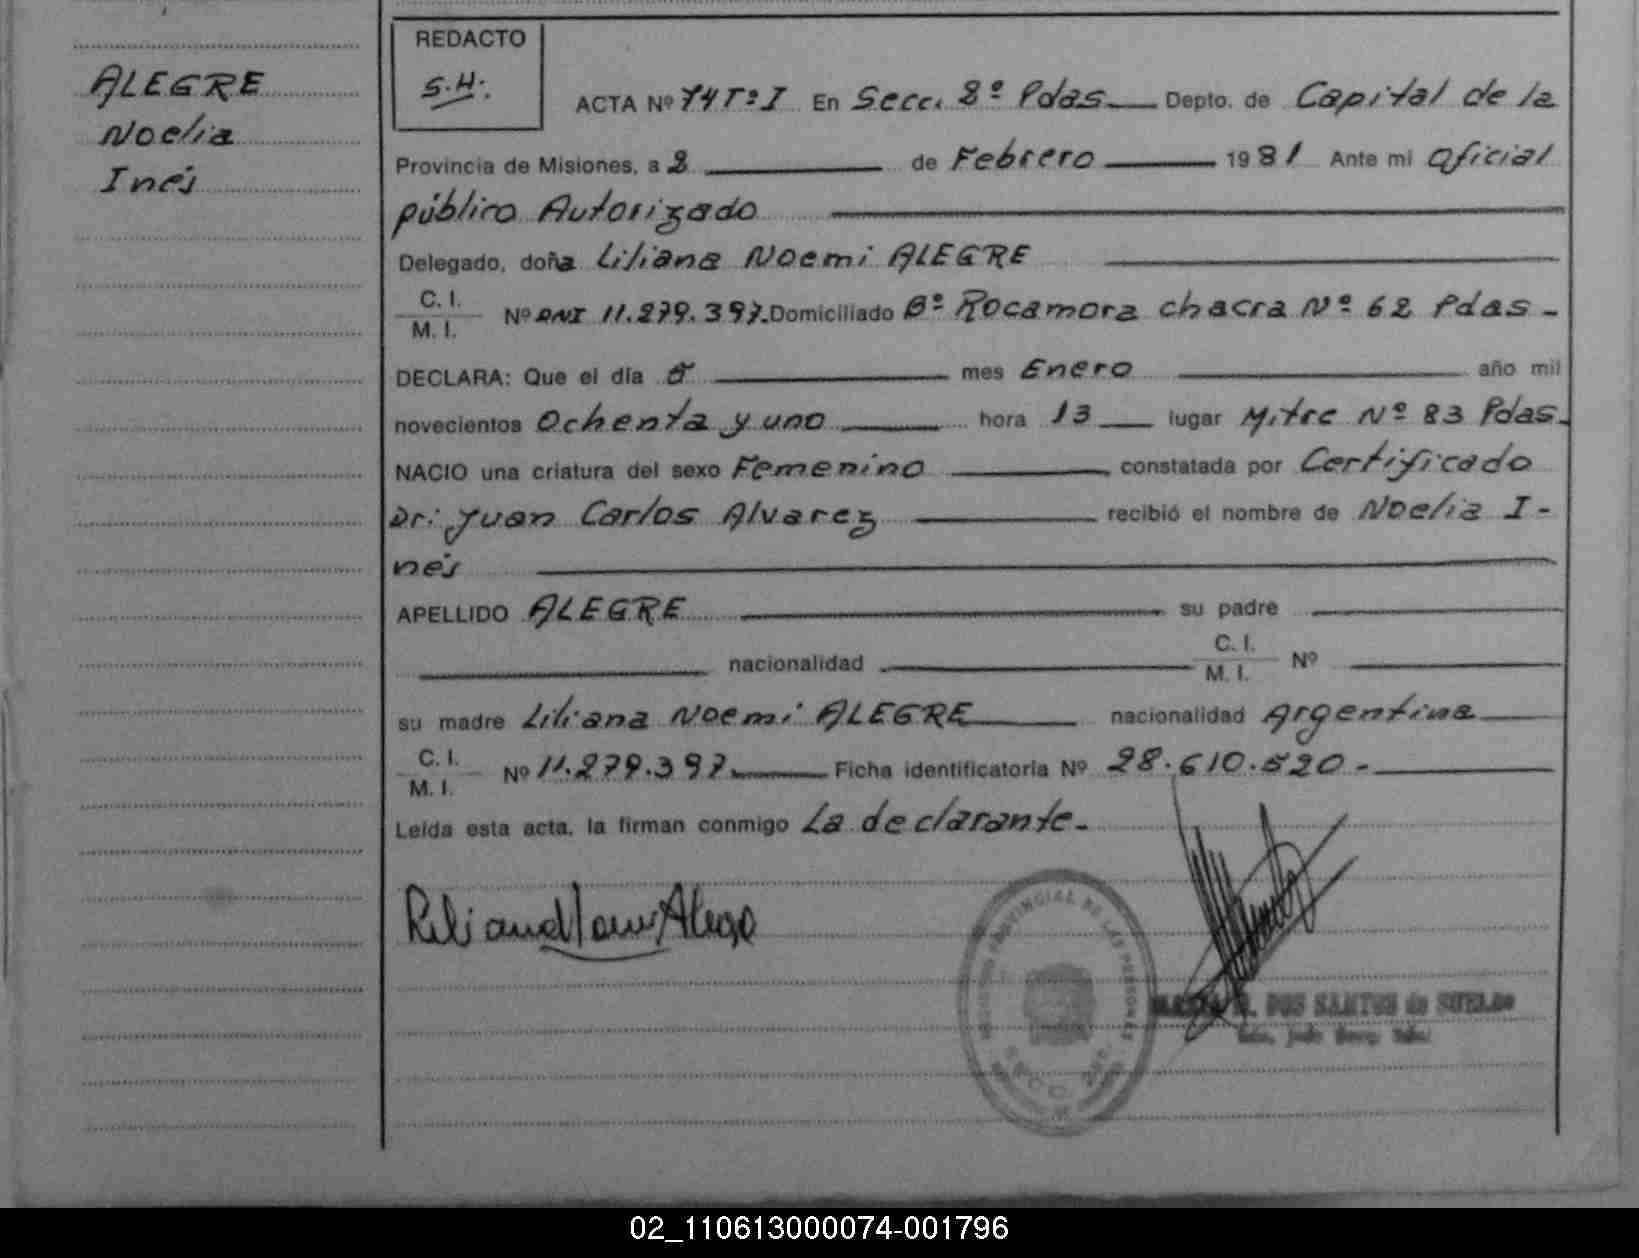 ALEGRE
Noelia
Inés
REDACTO
S.H.
ACTA Nº 74 Tº I En Secc. 2º Pdas. Depto. de Capital de la
Provincia de Misiones, a 2 de Febrero 1981 Ante mi Oficial
público Autorizado
Delegado, doña Liliana Noemi ALEGRE
C. I.
M. I. Nº DNI 11.279.397. Domiciliado Bº Rocamora chacra Nº 62 Pdas -
DECLARA: Que el día 5 mes Enero año mil
novecientos Ochenta y uno hora 13 lugar Mitre Nº 83 Pdas.
NACIO una criatura del sexo Femenino constatada por Certificado
Dr: Juan Carlos Alvarez recibió el nombre de Noelia I-
nés
APELLIDO ALEGRE su padre
nacionalidad C. I.
M. I. Nº
su madre Liliana Noemi ALEGRE nacionalidad Argentina
C. I.
M. I. Nº 11.279.397. Ficha identificatoria Nº 28.610.520.-
Leída esta acta, la firman conmigo La declarante.-
PROVINCIAL DE LAS PERSONAS
DOS SANTOS de SUELDO
02_110613000074-001796